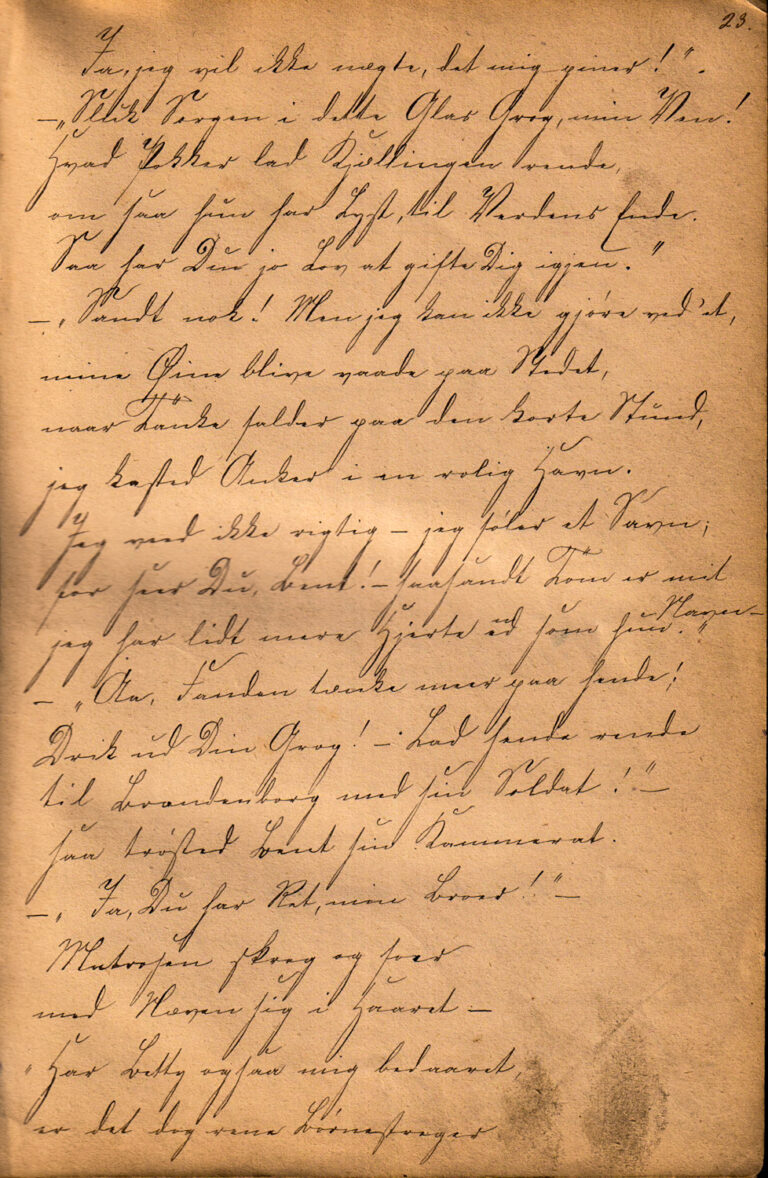 23.
Ja, jeg vil ikke nægte, det mig piner!".
—"Sluk Sorgen i dette Glas Grog, min Ven!
Hvad Pokker lad Kjællingen rende,
om saa hun har Lyst, til Verdens Ende.
Saa har Du jo Lov at gifte Dig igjen."
—"Sandt nok! Men jeg kan ikke gjøre ved 'et,
mine Øine blive vaade paa Stedet,
naar Tanke falder paa den korte Stund,
jeg kasted Anker i en rolig Havn.
Jeg veed ikke rigtig — jeg føler et Savn;
for seer Du, Bent! — saasandt Tom er mit
Navn —
jeg har lidt mere Hjerte end som hun."
— "Aa, Fanden tænke meer paa hende!
Drik ud Din Grog! — Lad hende rende
til Brandenborg med sin Soldat!" —
saa trøsted Bent sin Kammerat.
—"Ja, Du har Ret, min Broer!" —
Matrosen skreg og foer
med Næven sig i Haaret —
"Har Betty ogsaa mig bedaaret,
er det dog rene Børnestreger